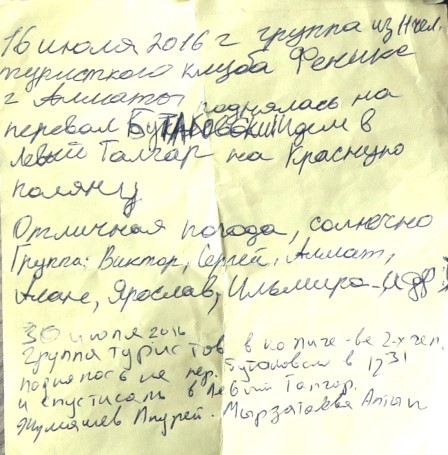 16 июля 2016 г группа из 11 чел.
туристкого клуба Феникс
г Алматы поднялась на
перевал БУТАКОВСКИЙ идем в
левый Талгар на Красную
поляну.
Отличная погода, солнечно
Группа: Виктор, Сергей, Алмат,
Ярослав, Ильмира
30 июля 2016
группа туристов в количе-ве 2-х чел.
поднялась на пер. Бутаковск в 17 31
и спустись в Левый Талгар.
Андрей.